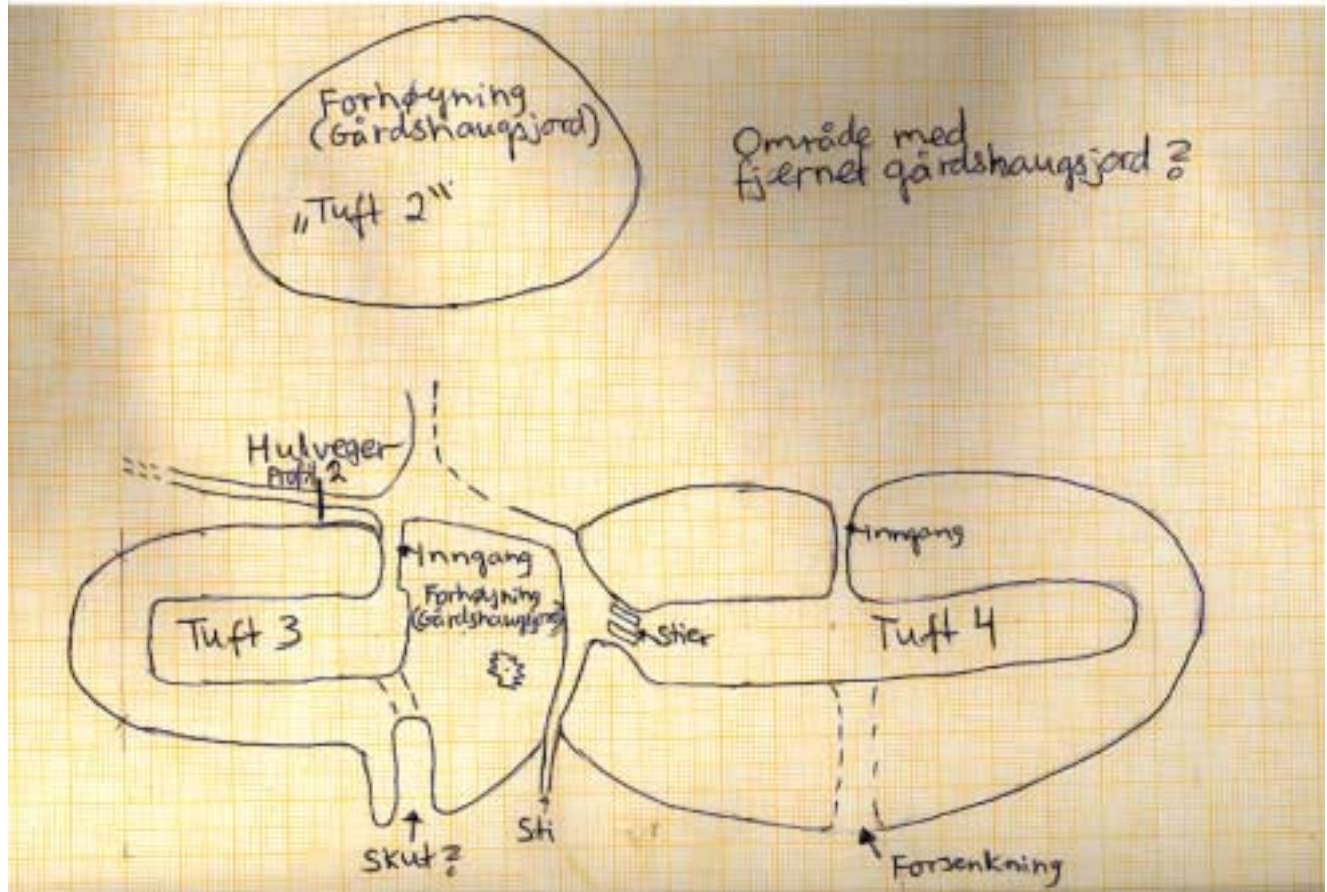 Forhøyning
(Gårdshaugsjord)
„Tuft 2"
Område med
fjernet gårdshaugsjord ?
Hulveger
Profil 2
Inngang
Inngang
Forhøyning
(Gårdshaugsjord)
Tuft 3
Stier
Tuft 4
Skut?
Sti
Forsenkning